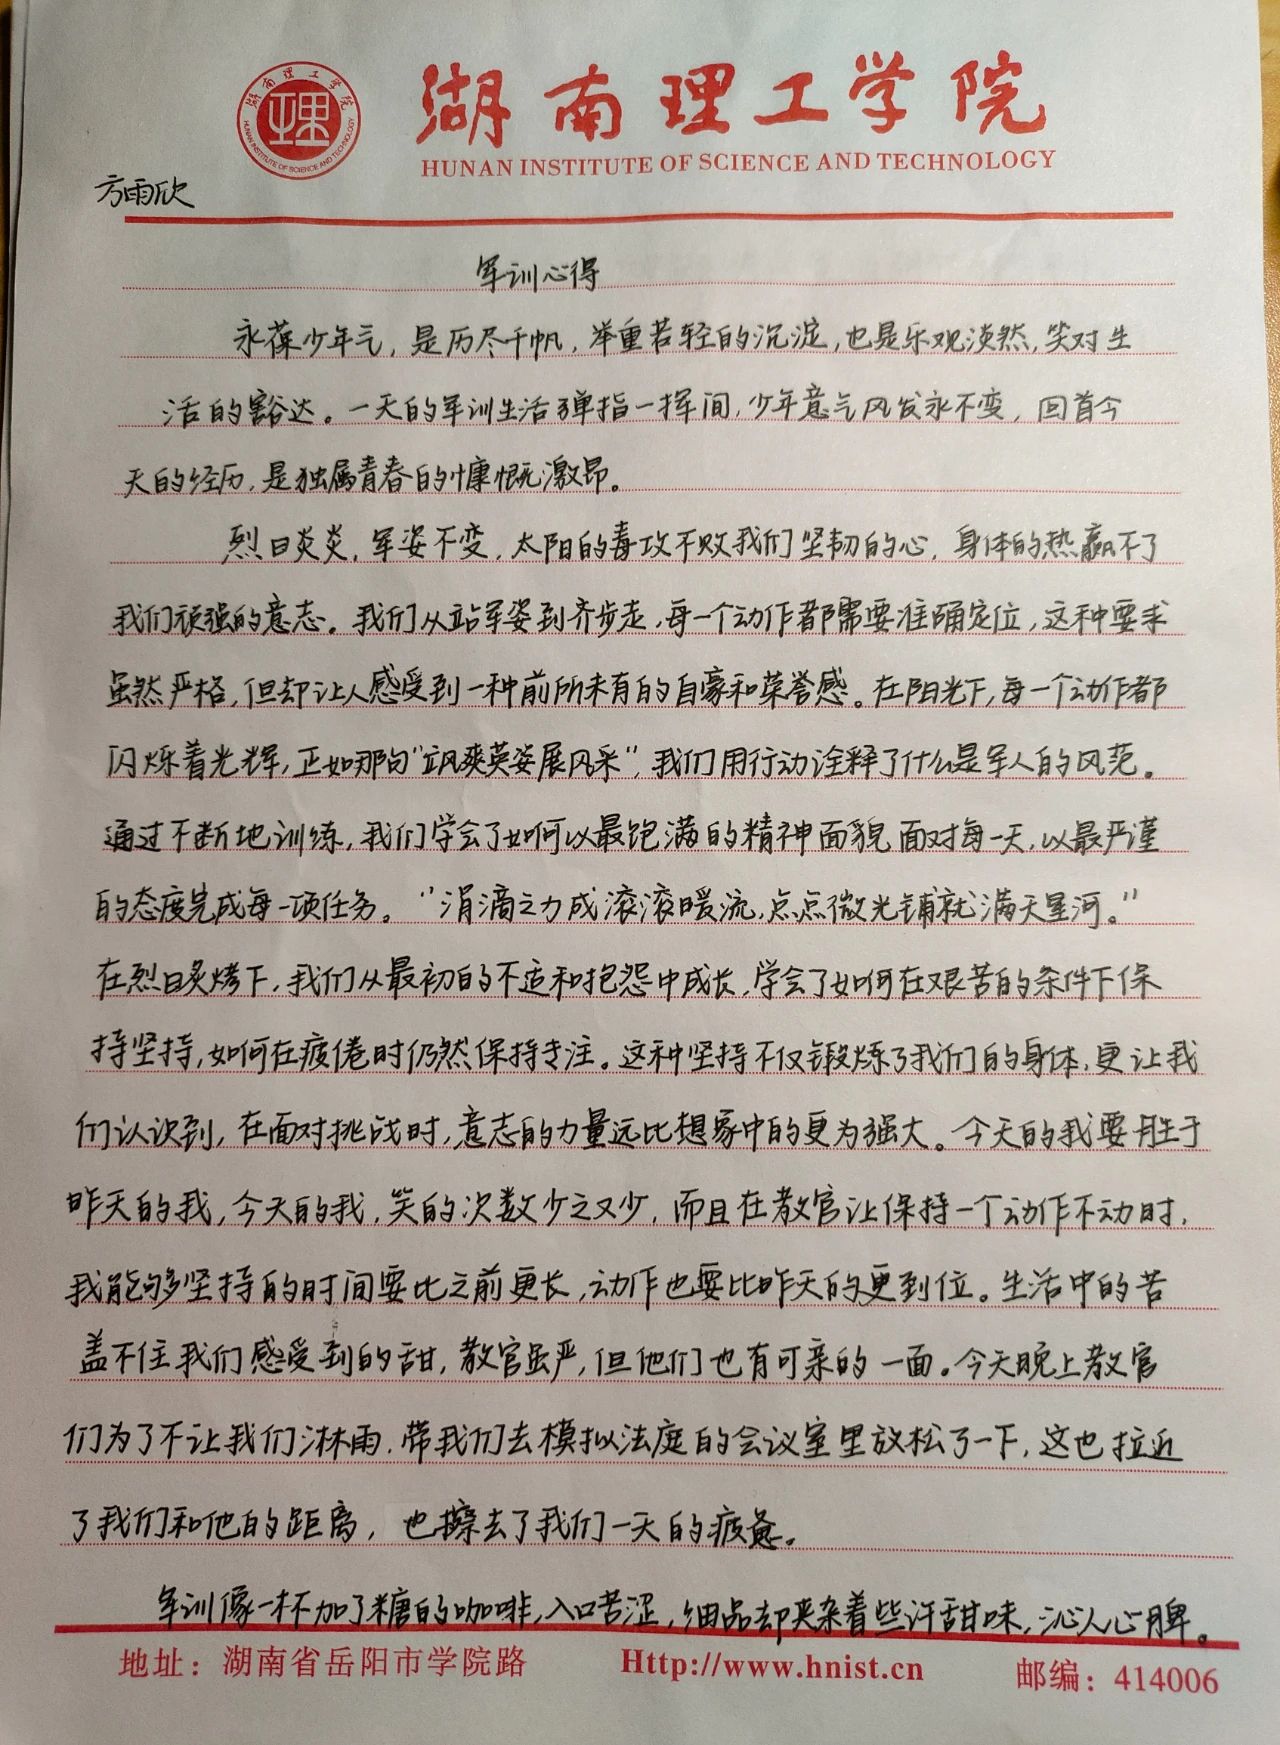 湖南理工学院
HUNAN INSTITUTE OF SCIENCE AND TECHNOLOGY
湖南理工学院
理
HUNAN INSTITUTE OF SCIENCE AND TECHNOLOGY
方雨欣
军训心得
永葆少年气，是历尽千帆，举重若轻的沉淀，也是乐观淡然，笑对生
活的豁达。一天的军训生活弹指一挥间，少年意气风发永不变，回首今
天的经历，是独属青春的慷慨激昂。
烈日炎炎，军姿不变，太阳的毒攻不败我们坚韧的心，身体的热赢不了
我们顽强的意志。我们从站军姿到齐步走，每一个动作都需要准确定位，这种要求
虽然严格，但却让人感受到一种前所未有的自豪和荣誉感。在阳光下，每一个动作都
闪烁着光辉，正如那句“飒爽英姿展风采”，我们用行动诠释了什么是军人的风范。
通过不断地训练，我们学会了如何以最饱满的精神面貌面对每一天，以最严谨
的态度完成每一项任务。“涓滴之力成滚滚暖流，点点微光铺就满天星河。”
在烈日炙烤下，我们从最初的不适和抱怨中成长，学会了如何在艰苦的条件下保
持坚持，如何在疲倦时仍然保持专注。这种坚持不仅锻炼了我们的身体，更让我
们认识到，在面对挑战时，意志的力量远比想象中的更为强大。今天的我要胜于
昨天的我，今天的我，笑的次数少之又少，而且在教官让保持一个动作不动时，
我能够坚持的时间要比之前更长，动作也要比昨天的更到位。生活中的苦
盖不住我们感受到的甜，教官虽严，但他们也有可亲的一面。今天晚上教官
们为了不让我们淋雨，带我们去模拟法庭的会议室里放松了一下，这也拉近
了我们和他的距离，也擦去了我们一天的疲惫。
军训像一杯加了糖的咖啡，入口苦涩，细品却夹杂着些许甜味，沁人心脾。
地址：湖南省岳阳市学院路
Http://www.hnist.cn
邮编：414006